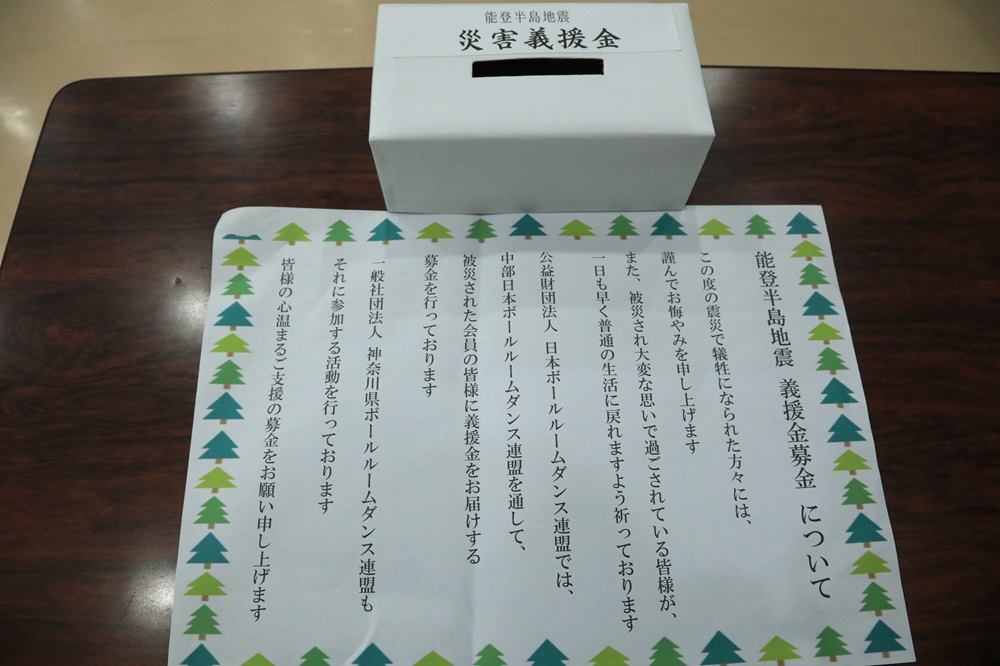 能登半島地震
災害義援金
能登半島地震 義援金募金 について
この度の震災で犠牲になられた方々には、
謹んでお悔やみを申し上げます
また、被災され大変な思いで過ごされている皆様が、
一日も早く普通の生活に戻れますよう祈っております
公益財団法人 日本ボールルームダンス連盟では、
中部日本ボールルームダンス連盟を通して、
被災された会員の皆様に義援金をお届けする
募金を行っております
一般社団法人 神奈川県ボールルームダンス連盟も
それに参加する活動を行っております
皆様の心温まるご支援の募金をお願い申し上げます